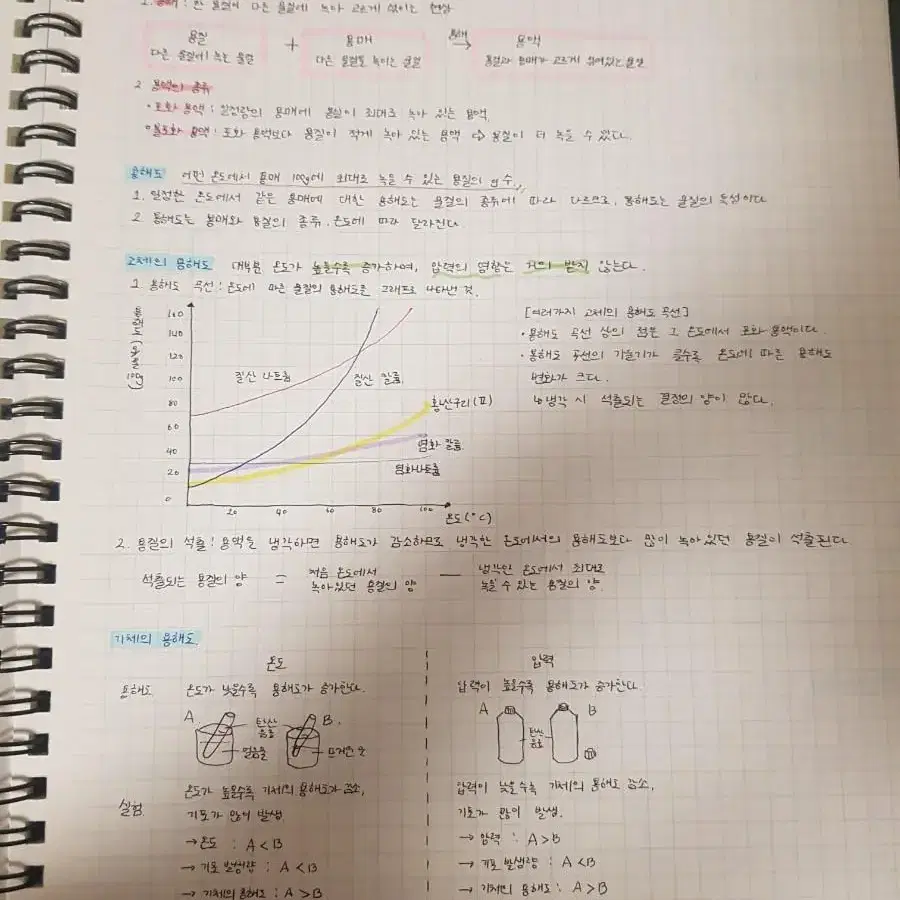 1. 용해 : 한 물질이 다른 물질에 녹아 고르게 섞이는 현상
용질 + 용매 용해→ 용액
다른 물질에 녹는 물질 다른 물질을 녹이는 물질 용질과 용매가 고르게 섞여있는 물질
2 용액의 종류
• 포화 용액 : 일정량의 용매에 용질이 최대로 녹아 있는 용액.
• 불포화 용액 : 포화 용액보다 용질이 적게 녹아 있는 용액 ⇨ 용질이 더 녹을 수 있다.
용해도 어떤 온도에서 용매 100g에 최대로 녹을 수 있는 용질의 g수.
1. 일정한 온도에서 같은 용매에 대한 용해도는 물질의 종류에 따라 다르므로, 용해도는 물질의 특성이다
2. 용해도는 용매와 용질의 종류, 온도에 따라 달라진다.
고체의 용해도 대부분 온도가 높을수록 증가하며, 압력의 영향은 거의 받지 않는다.
1. 용해도 곡선 : 온도에 따른 물질의 용해도를 그래프로 나타낸 것.
용해도 (g/물 100g)
160
140
120
100
80
60
40
20
0
20 40 60 80 100 온도(°C)
질산 나트륨
질산 칼륨
황산구리(Ⅱ)
염화 칼륨
염화나트륨
[여러가지 고체의 용해도 곡선]
• 용해도 곡선 상의 점은 그 온도에서 포화 용액이다.
• 용해도 곡선의 기울기가 클수록 온도에 따른 용해도
변화가 크다.
↳냉각 시 석출되는 결정의 양이 많다.
2. 용질의 석출 : 용액을 냉각하면 용해도가 감소하므로 냉각한 온도에서의 용해도보다 많이 녹아있던 용질이 석출된다
석출되는 용질의 양 = 처음 온도에서 녹아있던 용질의 양 — 냉각한 온도에서 최대로 녹을 수 있는 용질의 양.
기체의 용해도
온도 압력
용해도 온도가 낮을수록 용해도가 증가한다. 압력이 높을수록 용해도가 증가한다.
A 탄산음료 B.
얼음물 뜨거운 물
A 탄산음료 B
실험 온도가 높을수록 기체의 용해도가 감소,
기포가 많이 발생
→온도 : A < B
→ 기포 발생량 : A < B
→ 기체의 용해도 : A > B
압력이 낮을수록 기체의 용해도 감소,
기포가 많이 발생.
→ 압력 : A > B
→ 기포 발생량 : A < B
→ 기체의 용해도 : A > B